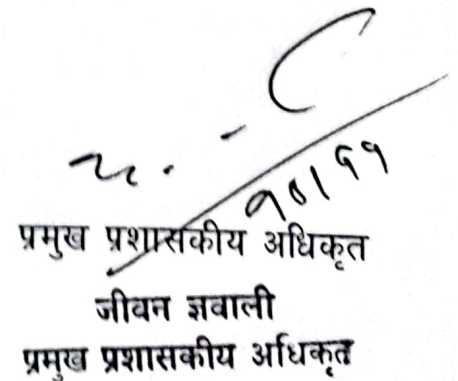 १०/११
प्रमुख प्रशासकीय अधिकृत
जीवन ज्ञवाली
प्रमुख प्रशासकीय अधिकृत